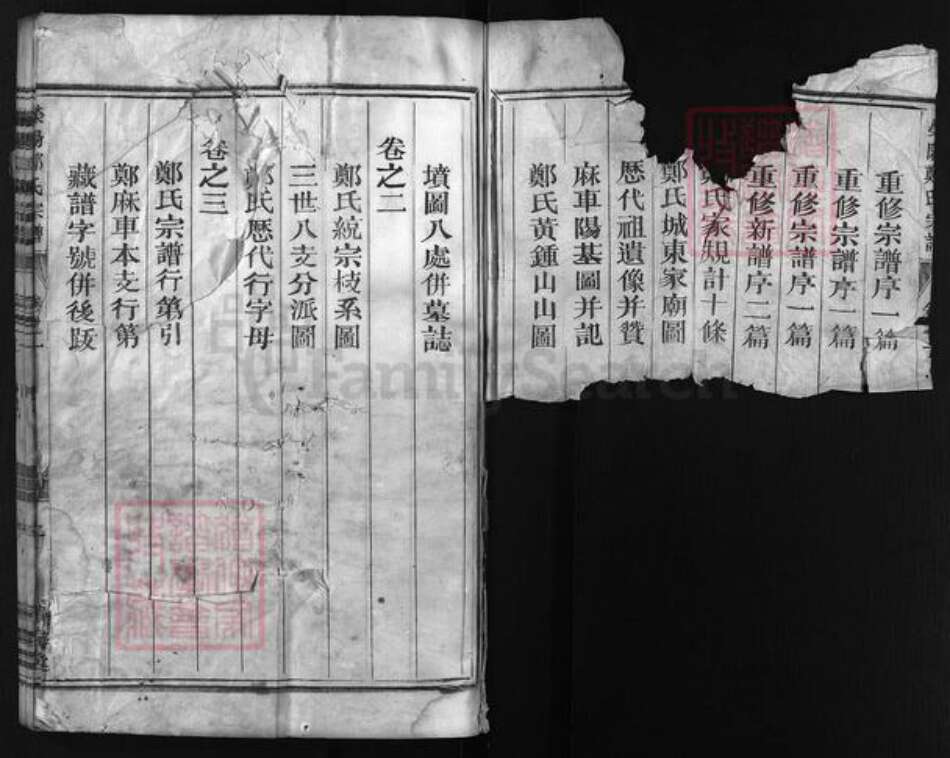 重修宗譜序一篇
重修宗譜序一篇
重修宗譜序一篇
重修新譜序二篇
鄭氏家規計十條
鄭氏城東家廟圖
歷代祖遺像并贊
麻車陽基圖并記
鄭氏黃鍾山山圖
墳圖八處併墓誌
卷之二
鄭氏統宗枝系圖
三世八支分派圖
鄭氏歷代行字母
卷之三
鄭氏宗譜行第引
鄭麻車本支行第
藏譜字號併後跋
FamilySearch